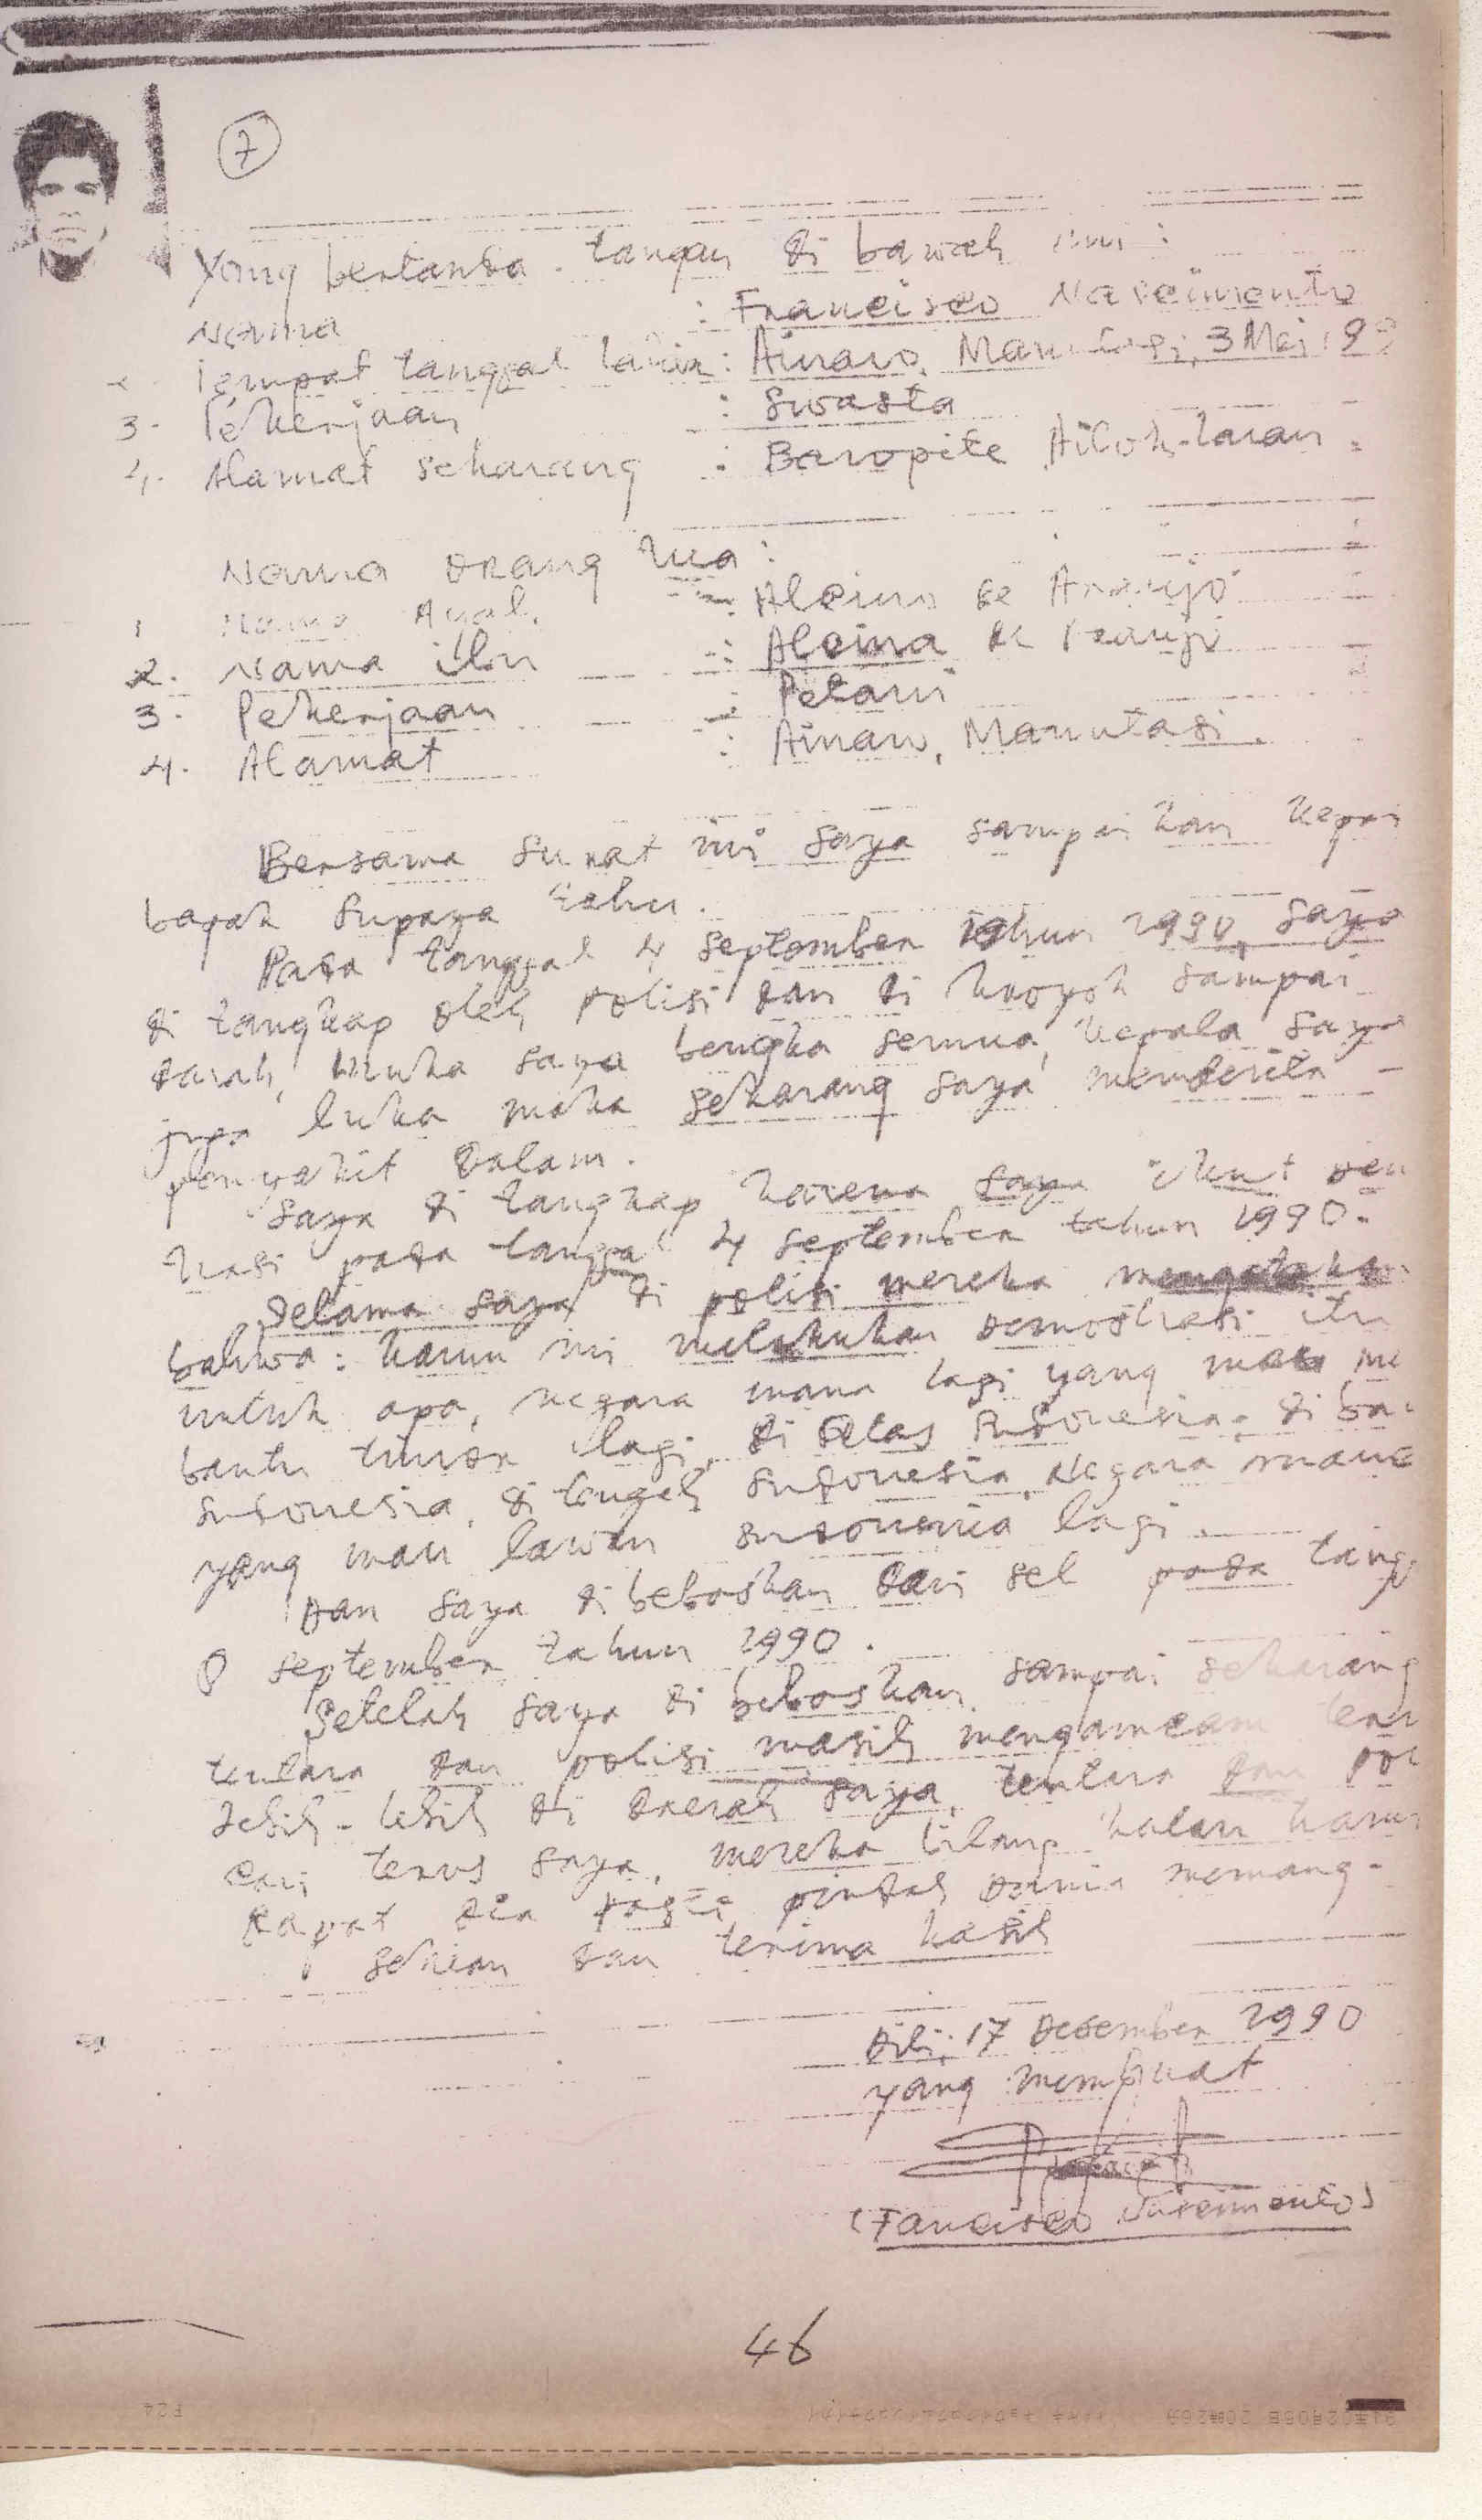 7
Yang bertanda tangan di bawah ini :
Nama : Francisco Nascimento
Tempat tanggal lahir : Ainaro, 3 Mei 199
3. Pekerjaan : Swasta
4. Alamat sekarang : Baropite Ailok-laran.
Nama orang tua :
1 Nama Ayah : Alcino de Araujo
2. Nama ibu : Alcina de Araujo
3. Pekerjaan : Petani
4. Alamat : Ainaro, Manutasi.
Bersama surat ini saya sampaikan kepa
bapak supaya tahu.
Pada tanggal 4 september tahun 1990, saya
di tangkap oleh polisi dan di kroyok sampai
darah, muka saya bengka semua, kepala saya
juga luka maka sekarang saya menderita -
penyakit dalam.
Saya di tangkap karena saya ikut
krasi pada tanggal 4 september tahun 1990.
Selama saya di polisi mereka mengatakan
bahwa : kamu ini melakukan demostrasi itu
untuk apa, negara mana lagi yang mau me
bantu timor lagi, di atas Indonesia, di ba
Indonesia, di tengah Indonesia, Negara mana
yang mau lawan Indonesia lagi.
Dan saya di bebaskan dari sel pada tangg
8 september tahun 1990.
Setelah saya di bebaskan sampai sekarang
tentara dan polisi masih mengancam teru
lebih-lebih di daerah saya, tentara dan pol
cari terus saya, mereka bilang kalau kamu
dapat dia pasti pindah dunia memang.
sekian dan terima kasih
Dili, 17 Desember 1990
yang membuat
(Fancisco Nascimento)
46
F24